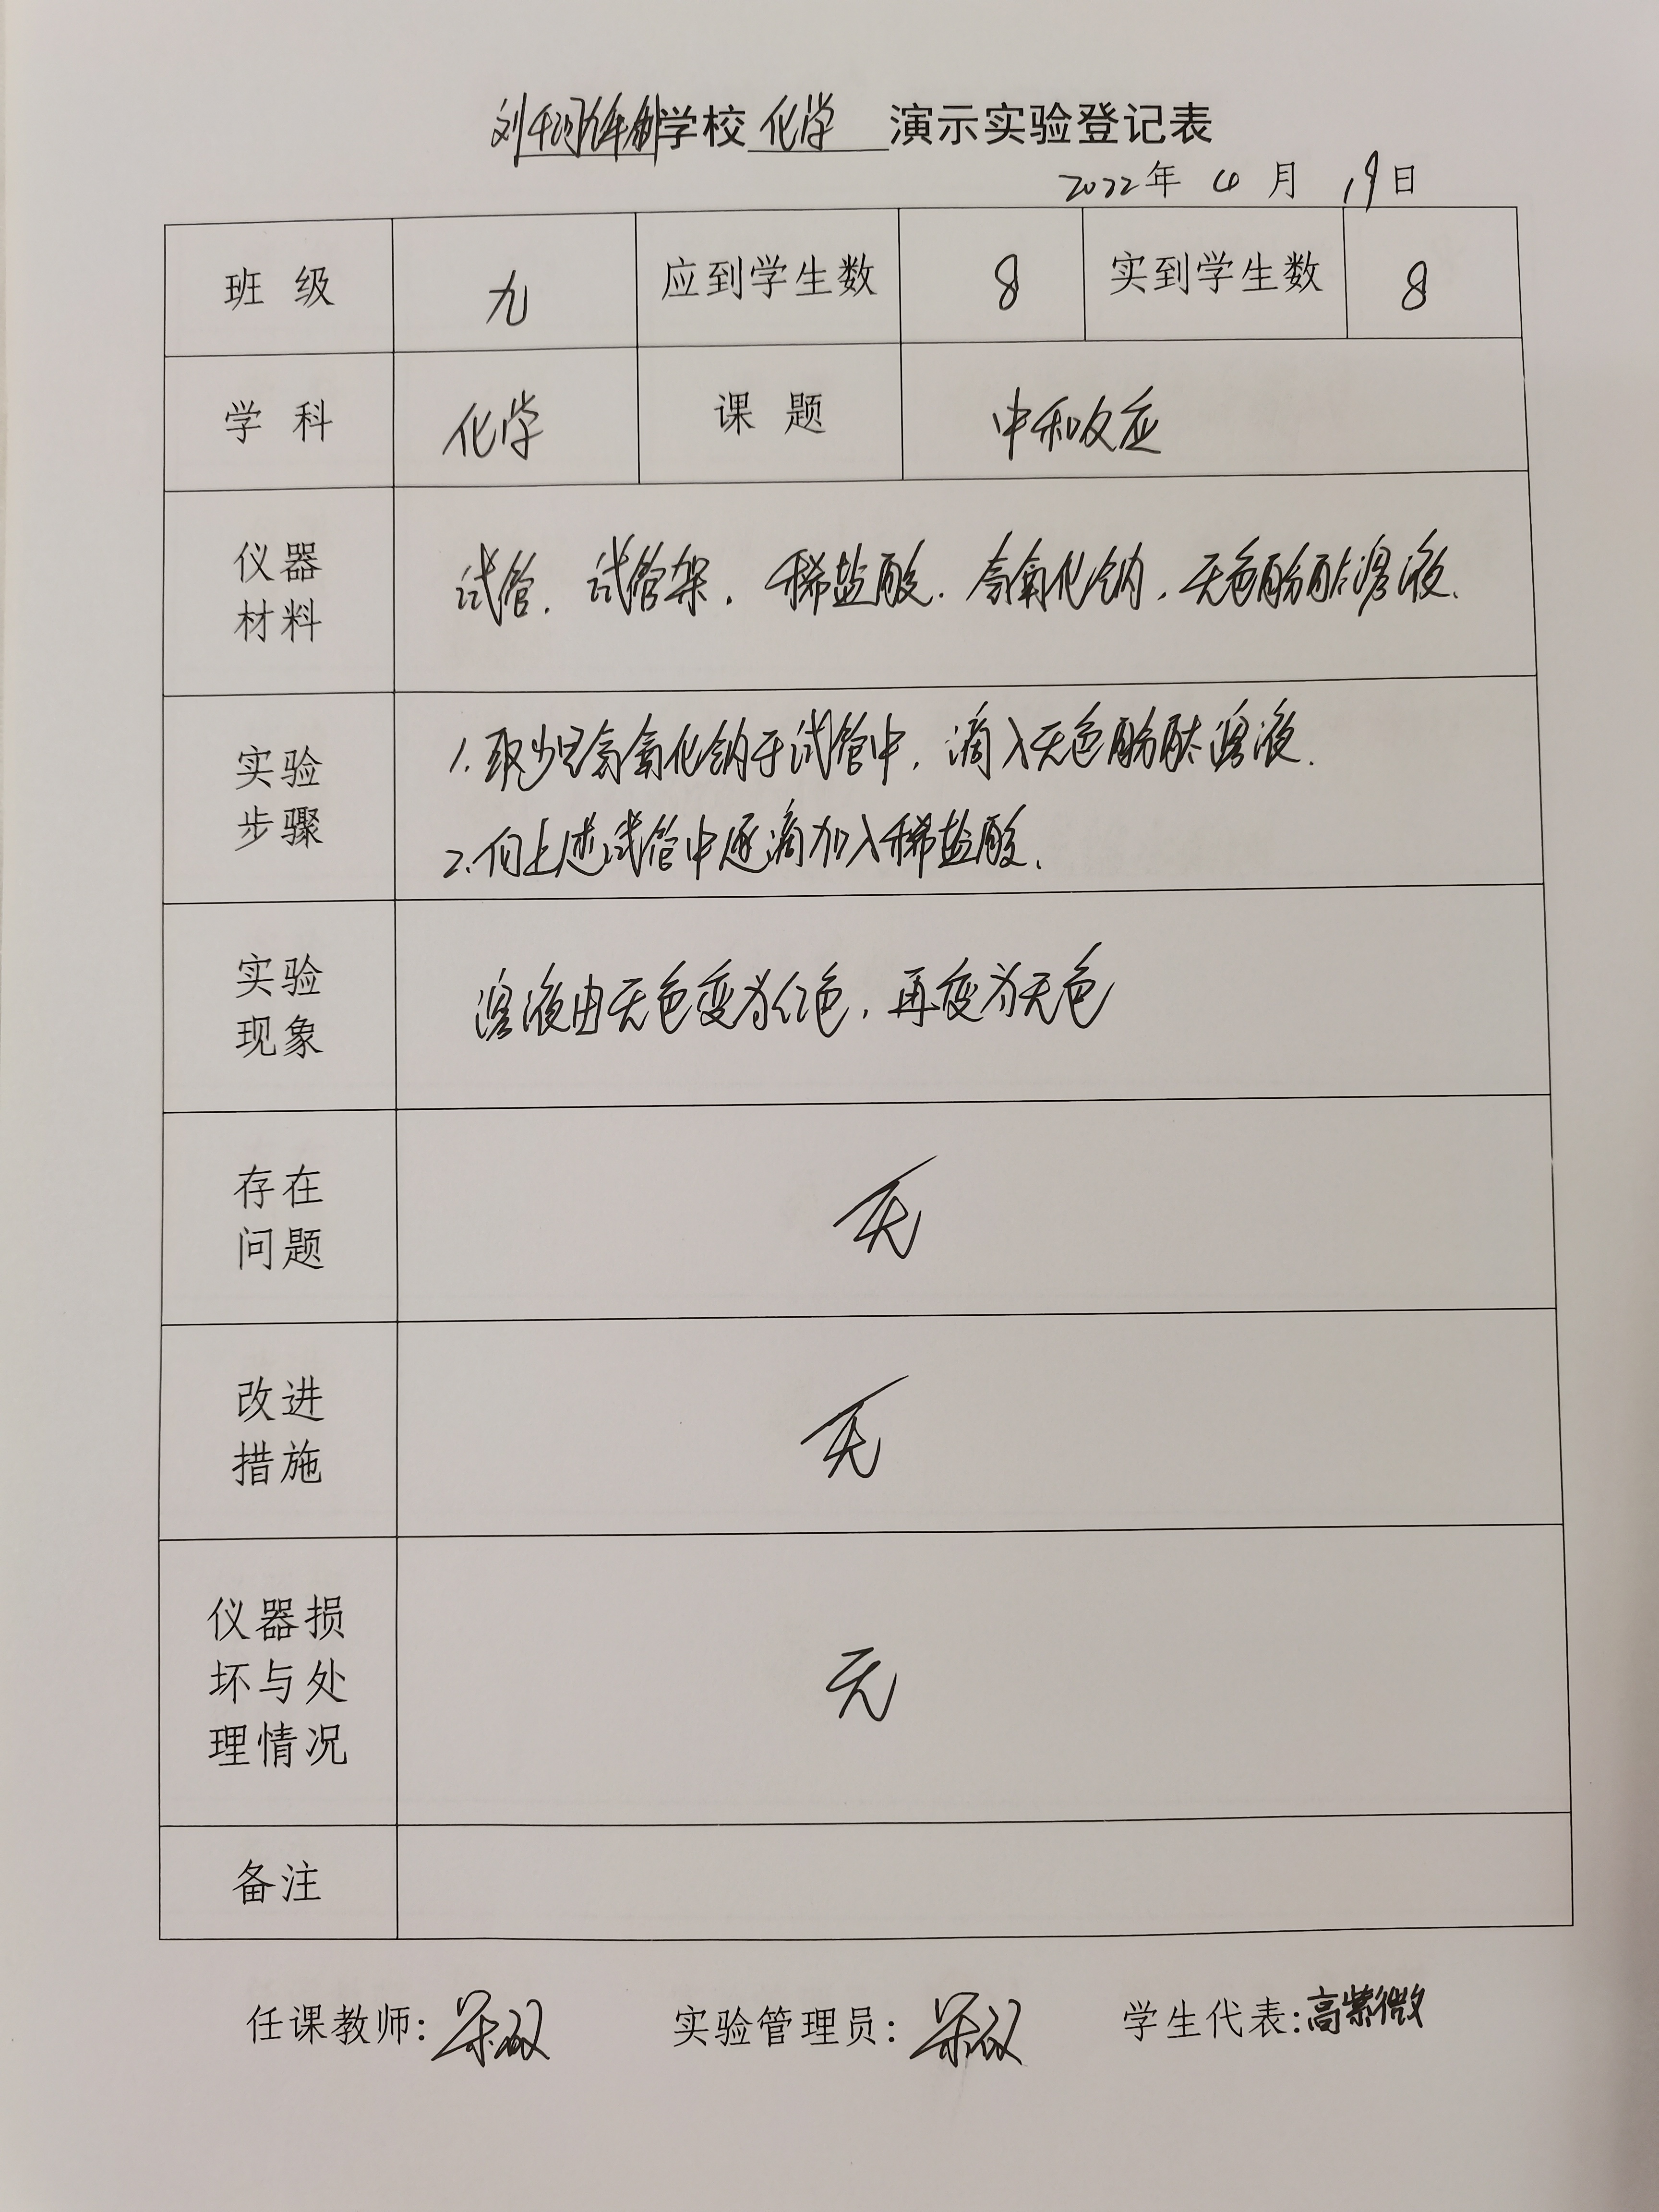 刘千河九年制学校 化学 演示实验登记表
2022年 4 月 19日
班 级 九 应到学生数 8 实到学生数 8
学 科 化学 课 题 中和反应
仪器
材料
试管. 试管架. 稀盐酸. 氢氧化钠. 无色酚酞溶液.
实验
步骤
1. 取少量氢氧化钠于试管中, 滴入无色酚酞溶液.
2. 向上述试管中逐滴加入稀盐酸.
实验
现象
溶液由无色变为红色, 再变为无色
存在
问题
无
改进
措施
无
仪器损
坏与处
理情况
无
备注
任课教师: 实验管理员: 学生代表: 高紫微